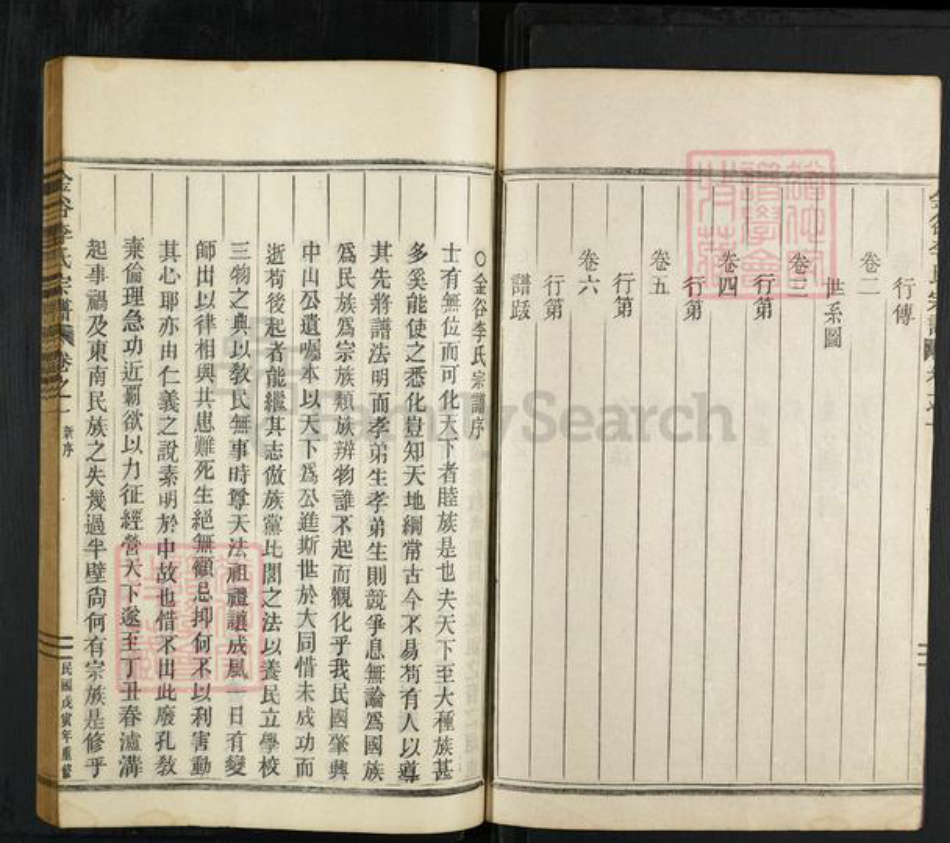 行傳
卷二
世系圖
卷三
行第
卷四
行第
卷五
行第
卷六
行第
譜跋
〇金谷李氏宗譜序
士有無位而可化天下者睦族是也夫天下至大種族甚
多奚能使之悉化豈知天地綱常古今不易苟有人以導
其先將譜法明而孝弟生孝弟生則競爭息無論為國族
為民族為宗族類族辨物誰不起而觀化乎我民國肇興
中山公遺囑本以天下為公進斯世於大同惜未成功而
逝苟後起者能繼其志倣族黨比閭之法以養民立學校
三物之典以敎民無事時尊天法祖禮讓成風一日有變
師出以律相與共患難死生絕無顧忌抑何不以利害動
其心耶亦由仁義之說素明於中故也惜不出此廢孔敎
棄倫理急功近霸欲以力征經營天下遂至丁丑春瀘溝
起事禍及東南民族之失幾過半壁尙何有宗族是修乎
金谷李氏宗譜 卷之一 新序 民國戊寅年重修
FamilySearch